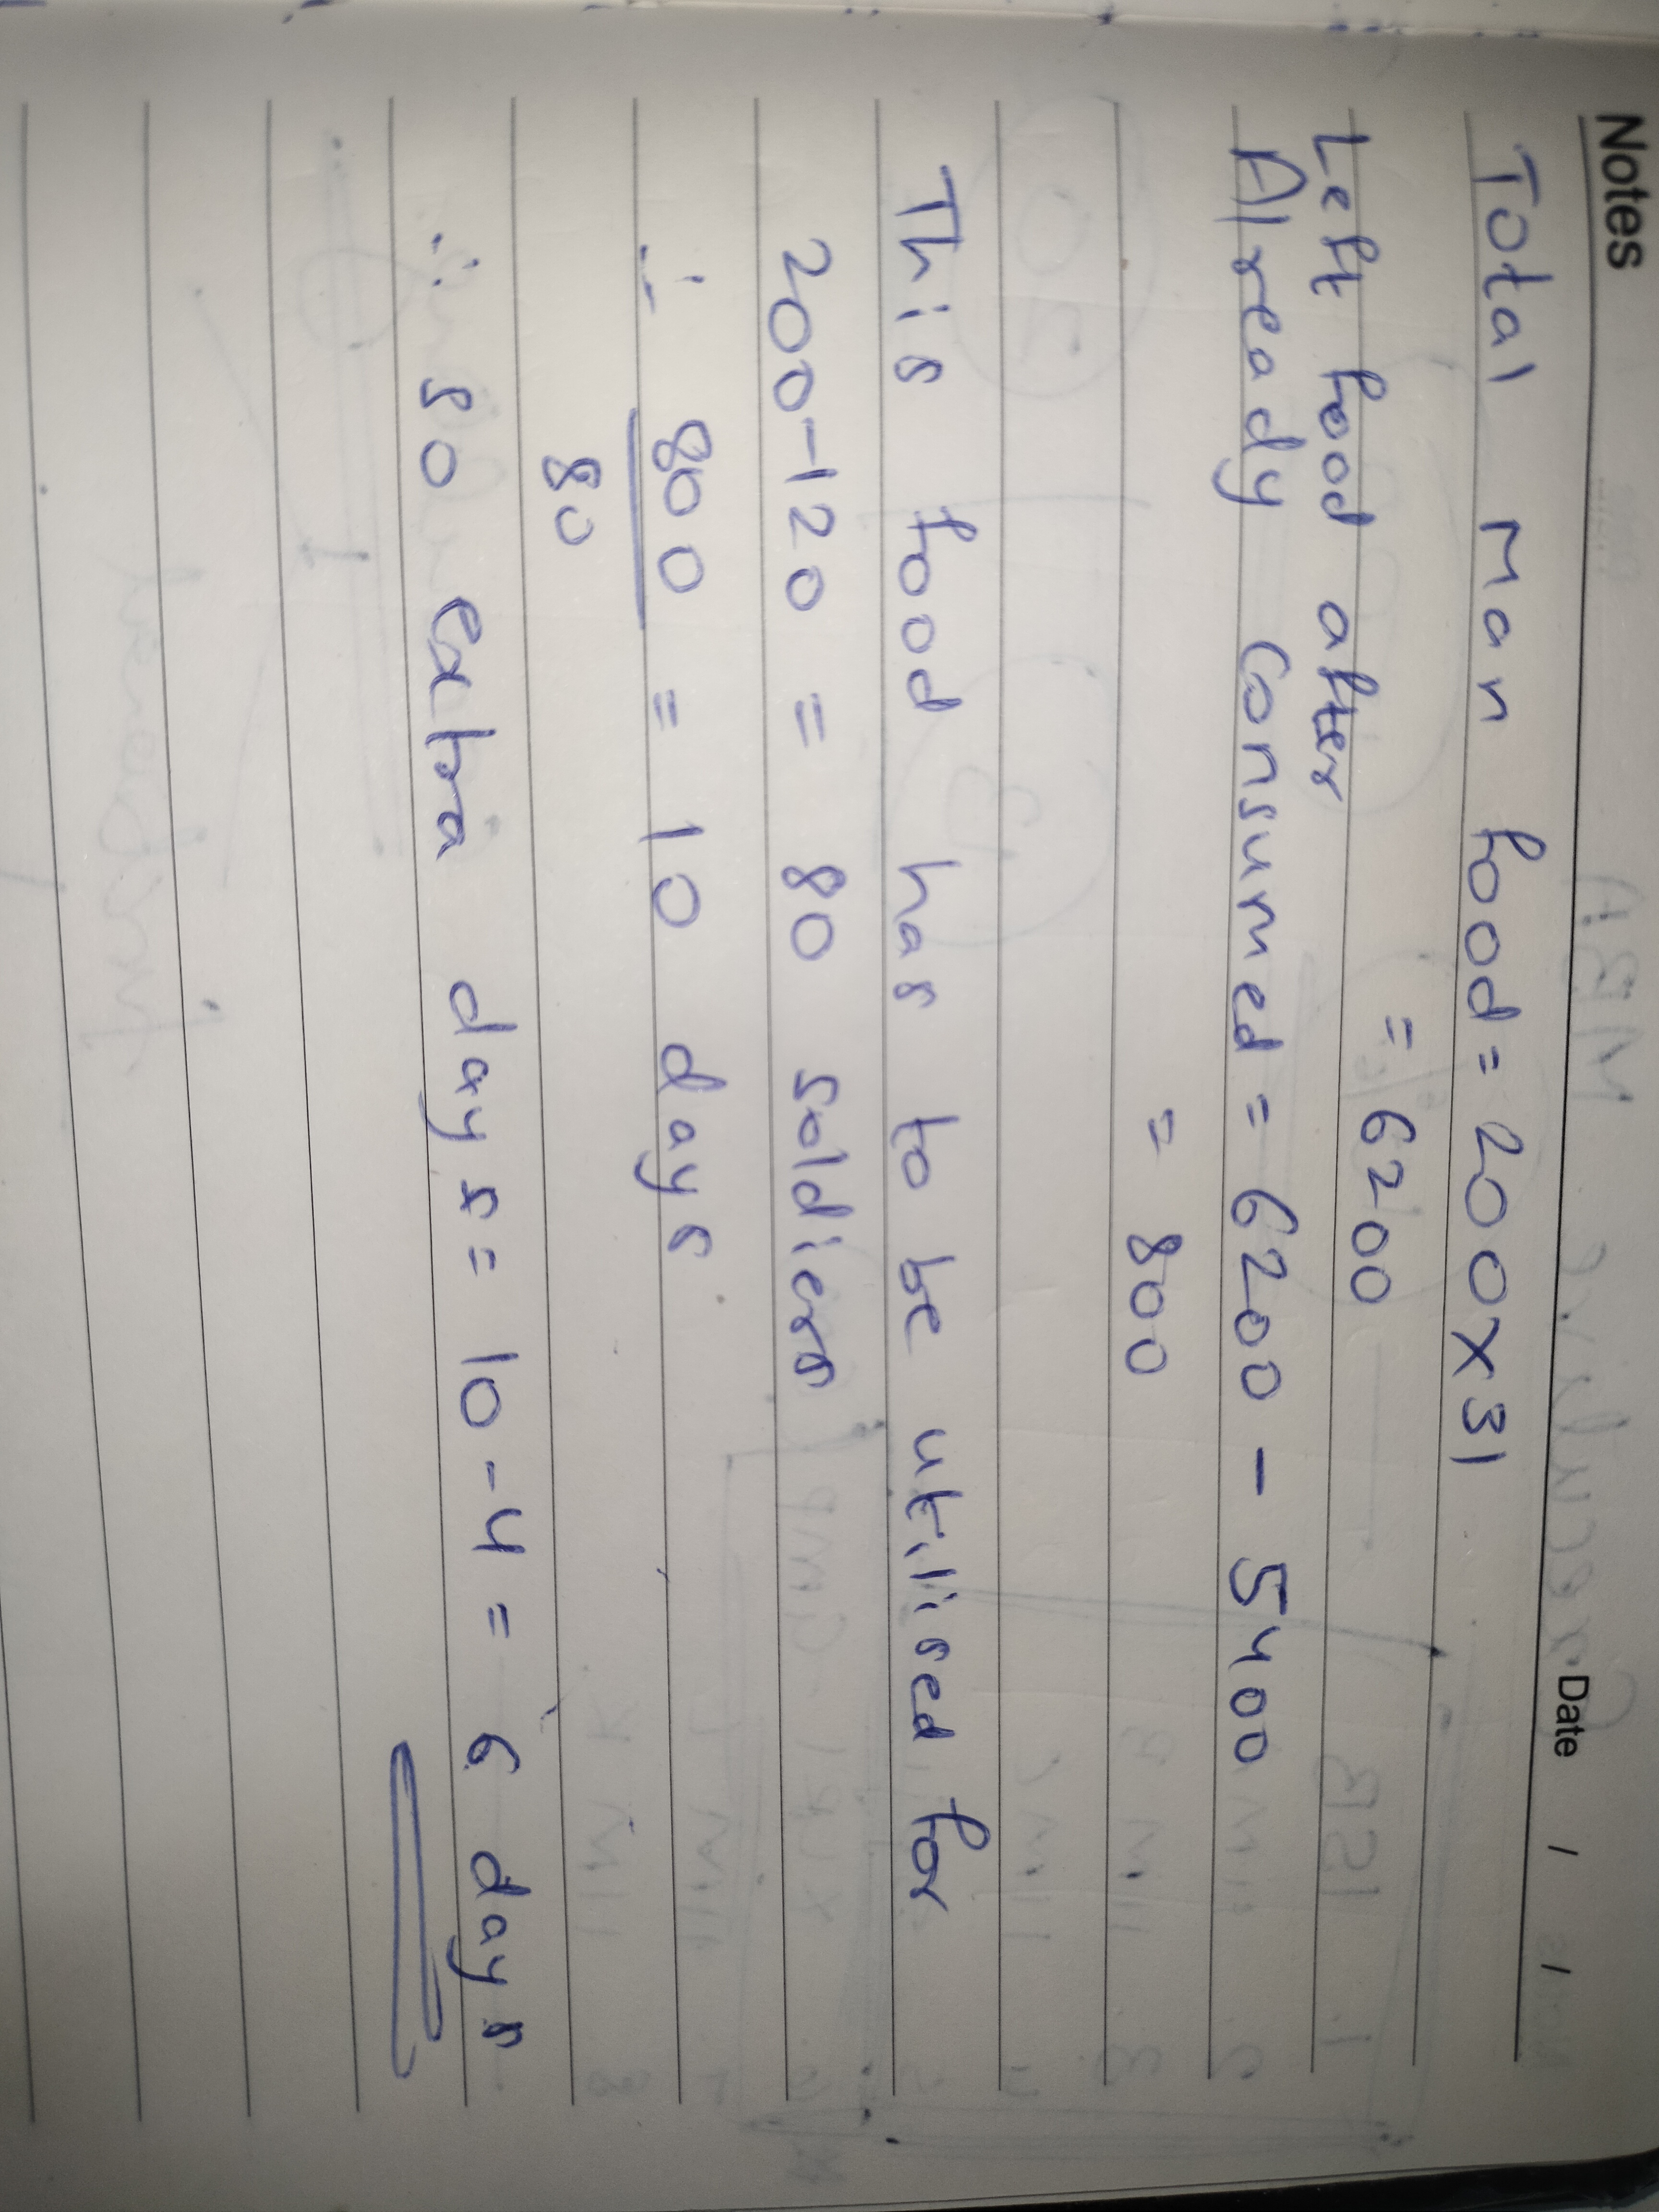 Notes Date / /
Total man food = 200x31
= 6200
Left food after
Already consumed = 6200 - 5400
= 800
This food has to be utilised for
200-120 = 80 soldiers
∴ 800 = 10 days
80
∴ so extra days = 10-4 = 6 days